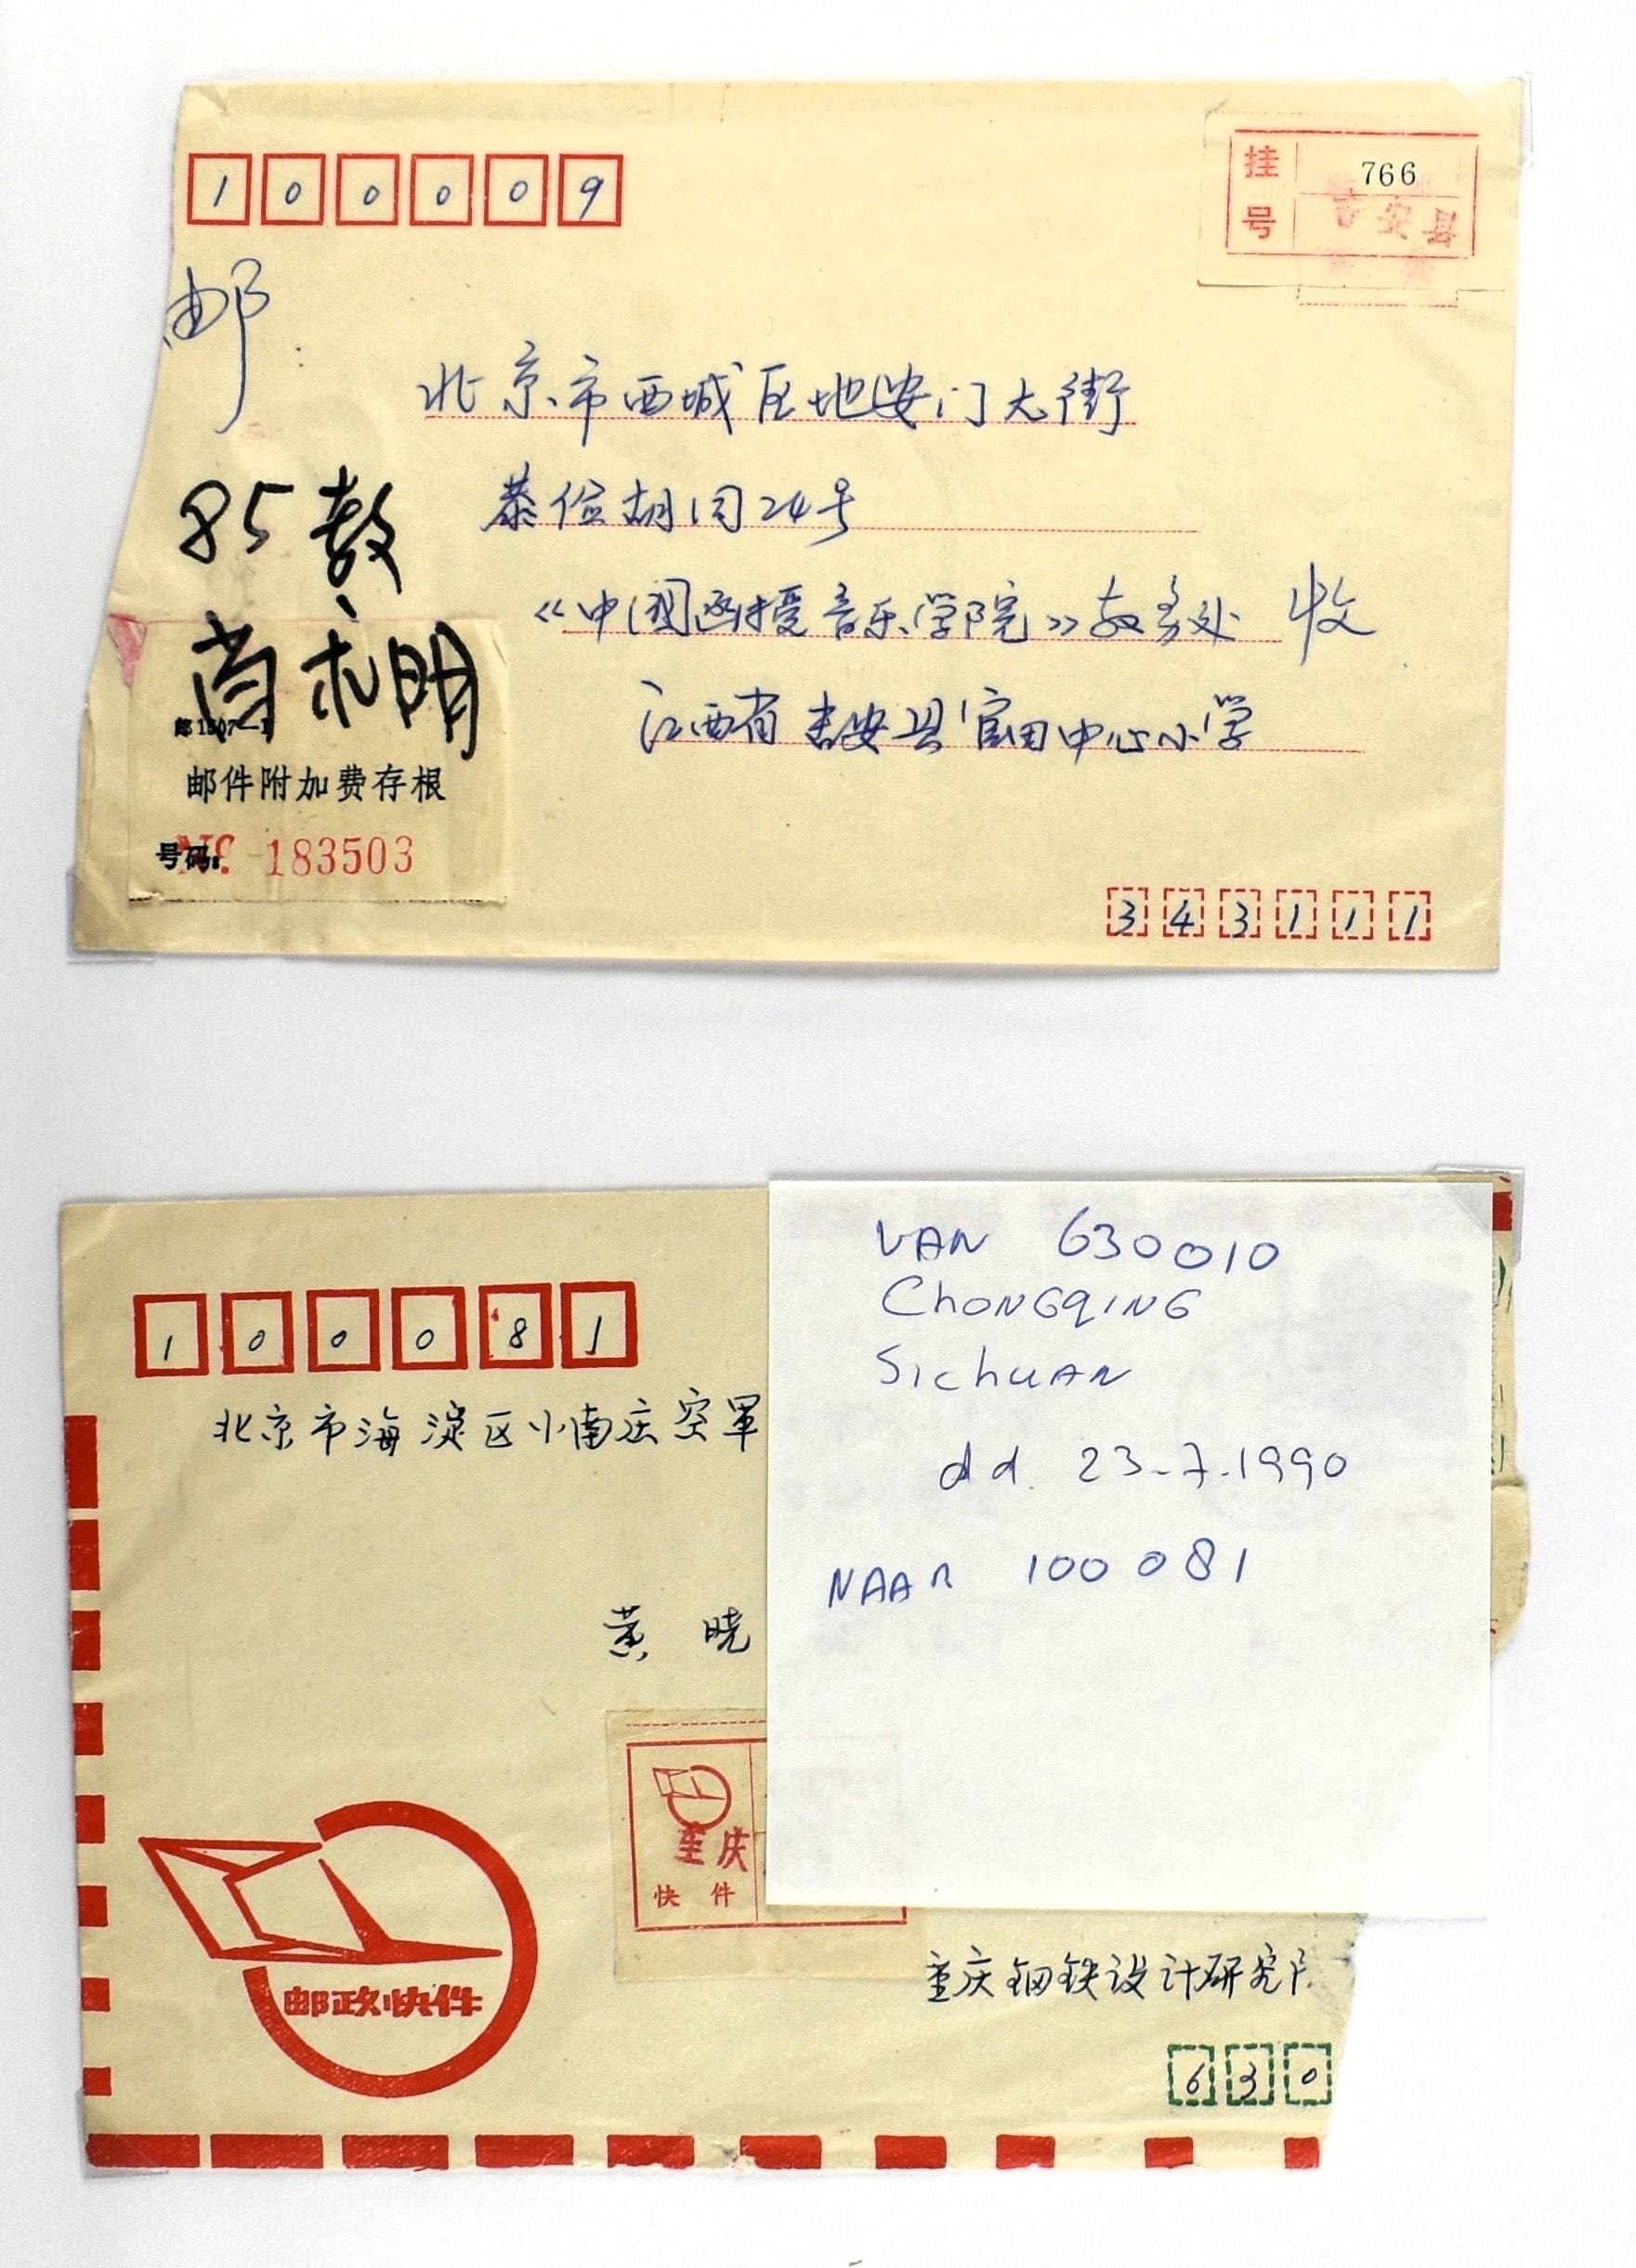 100009
挂号 766
吉安县
邮
北京市西城区地安门大街
恭俭胡同24号
《中国函授音乐学院》教务处 收
江西省吉安县官田中心小学
85教
邮1507-1
邮件附加费存根
号码: No. 183503
343111
100081
北京市海淀区小南庄空军
黄 晓
重庆
快件
邮政快件
重庆钢铁设计研究
630
VAN 630010
ChONGQING
SichUAN
dd. 23-7-1990
NAAR 100081